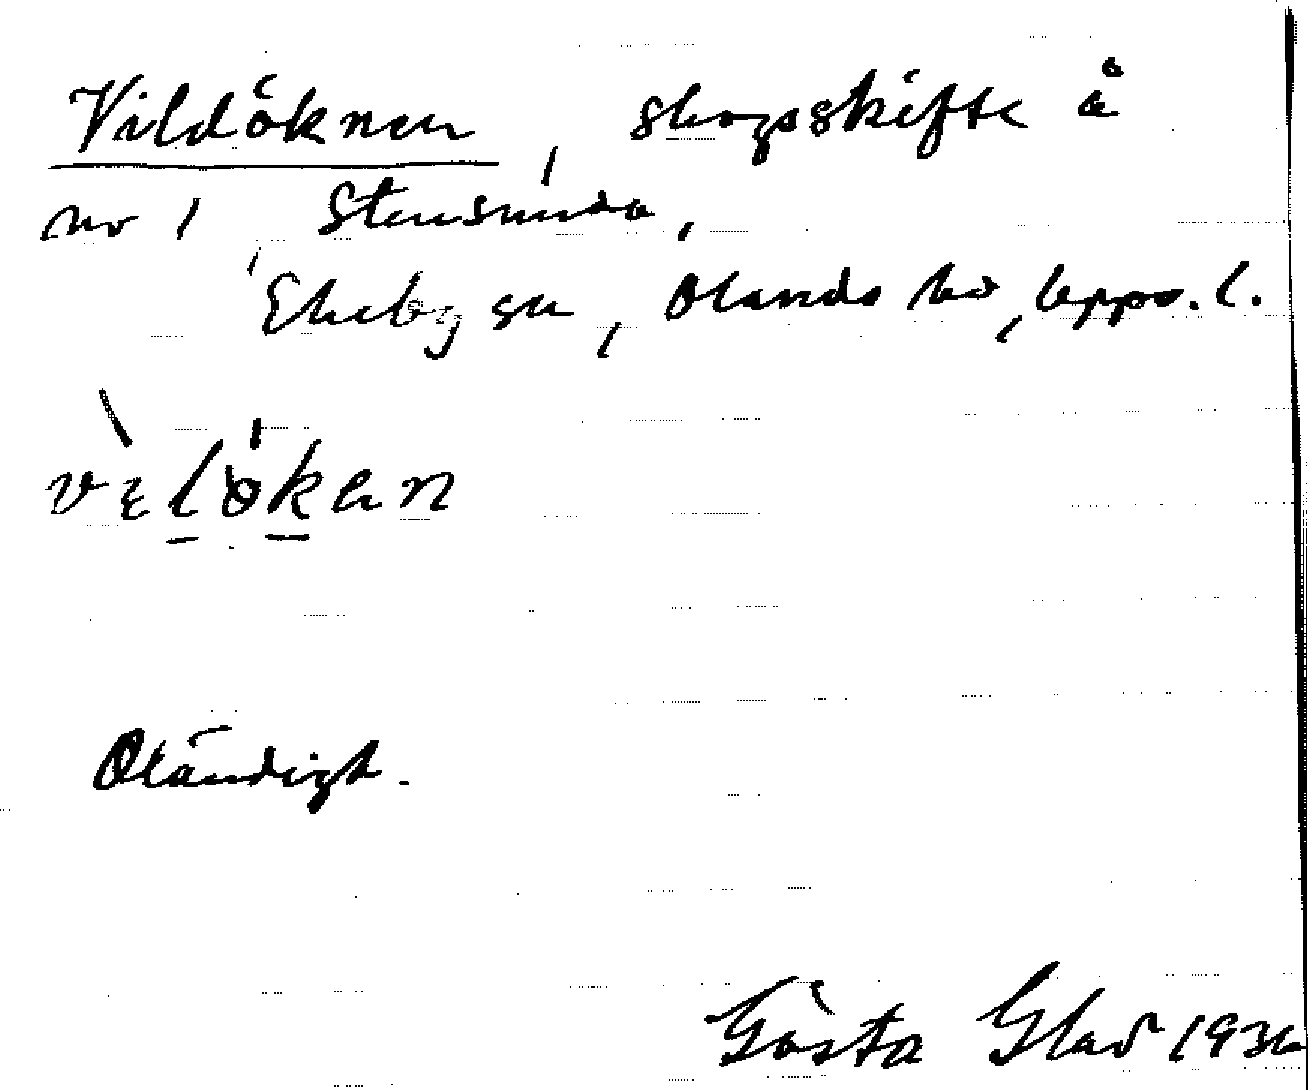 Vildöknen, skogsskifte å
nr 1 Stensunda,
Ekeby sn, Olands hd, Upps. l.
vɛ̀lökan
Oländigt.
Gösta Glad 1936